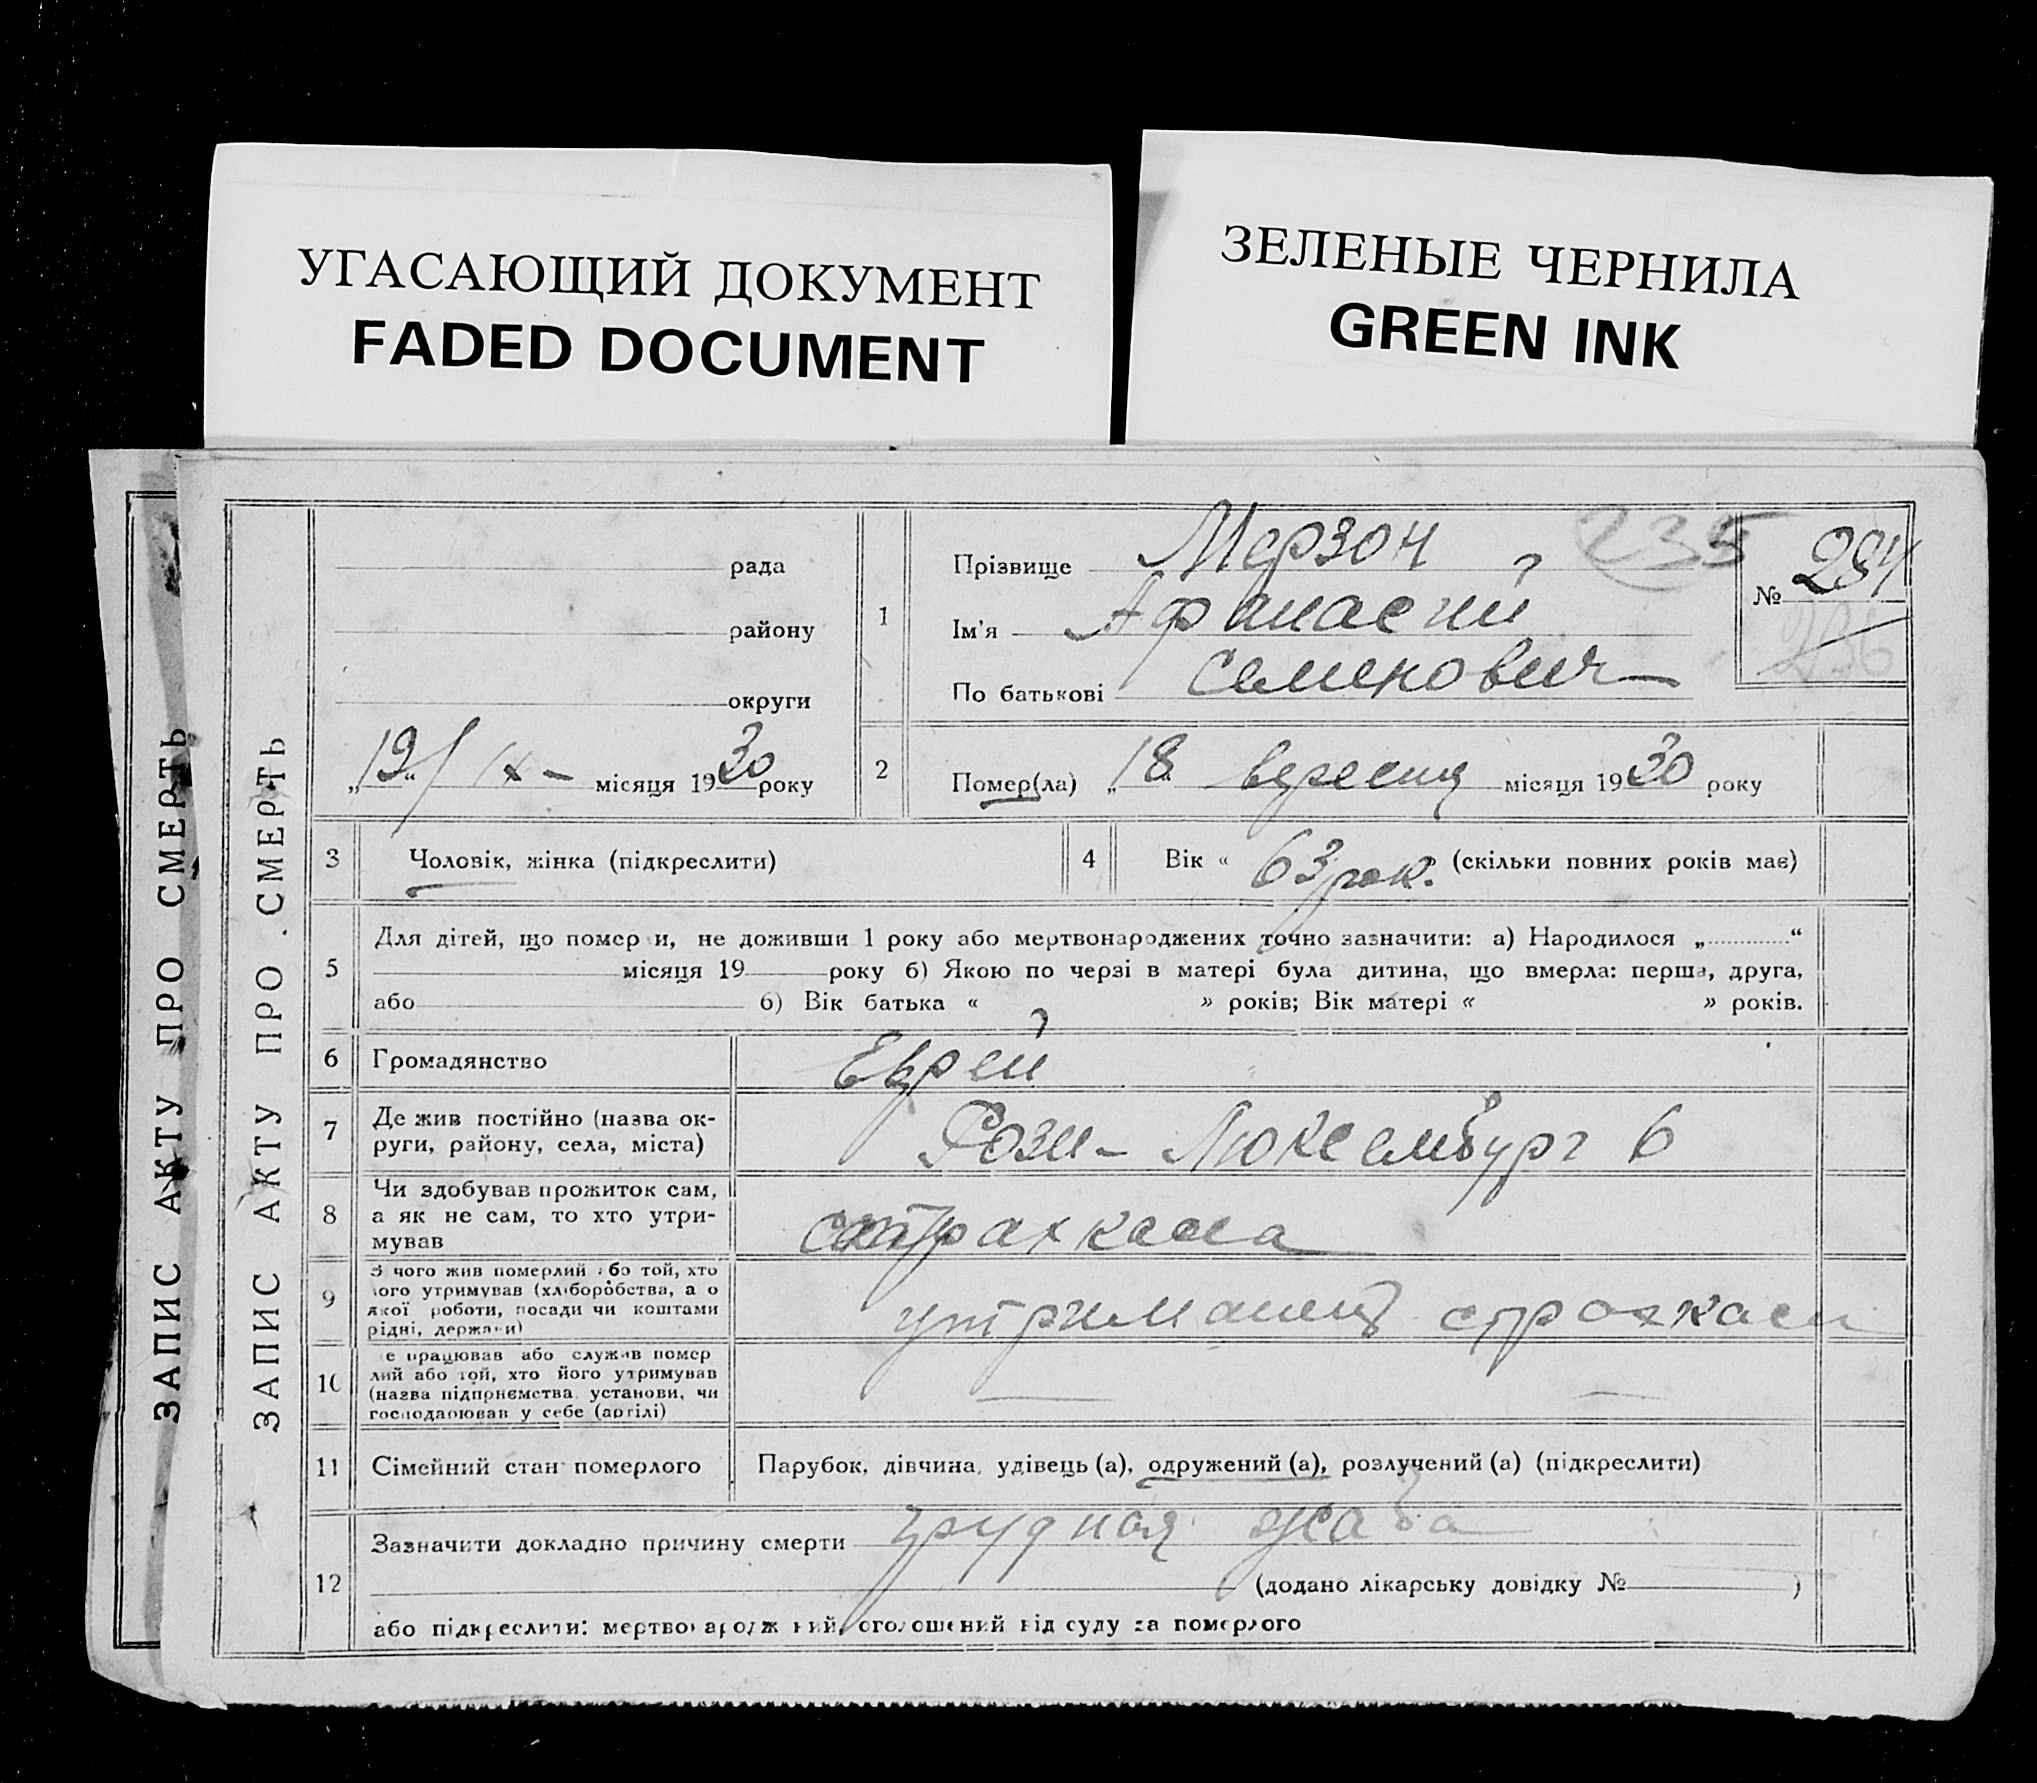 УГАСАЮЩИЙ ДОКУМЕНТ
FADED DOCUMENT
ЗЕЛЕНЫЕ ЧЕРНИЛА
GREEN INK
ЗАПИС АКТУ ПРО СМЕРТЬ
ЗАПИС АКТУ ПРО СМЕРТЬ
рада
району
округи
„19“ IX - місяця 1930 року
1
Прізвище Мерзон
Ім'я Афанасий
По батькові Семенович
235
№ 284
236
2
Помер(ла) „18 вересня місяця 1930 року
3 Чоловік, жінка (підкреслити)
4 Вік « 63 рок. (скільки повних років має)
5
Для дітей, що помер и, не доживши 1 року або мертвонароджених точно зазначити: а) Народилося „ “
місяця 19 року б) Якою по черзі в матері була дитина, що вмерла: перша, друга,
або б) Вік батька « » років; Вік матері « » років.
6 Громадянство Еврей
7 Де жив постійно (назва ок-
руги, району, села, міста)
Рози - Люксембург 6
8 Чи здобував прожиток сам,
а як не сам, то хто утри-
мував
страхкаса
9 З чого жив померлий або той, хто
його утримував (хліборобства, а о
якої роботи, посади чи коштами
рідні, держави)
утриманец страхкаси
10 е працював або служив помер
лий або той, хто його утримував
(назва підприємства, установи, чи
господарював у себе (артілі)
11 Сімейний стан померлого Парубок, дівчина, удівець (а), одружений (а), розлучений (а) (підкреслити)
12
Зазначити докладно причину смерти грудная жаба
(додано лікарську довідку № )
або підкреслити: мертвонароджений, оголошений від суду за померлого